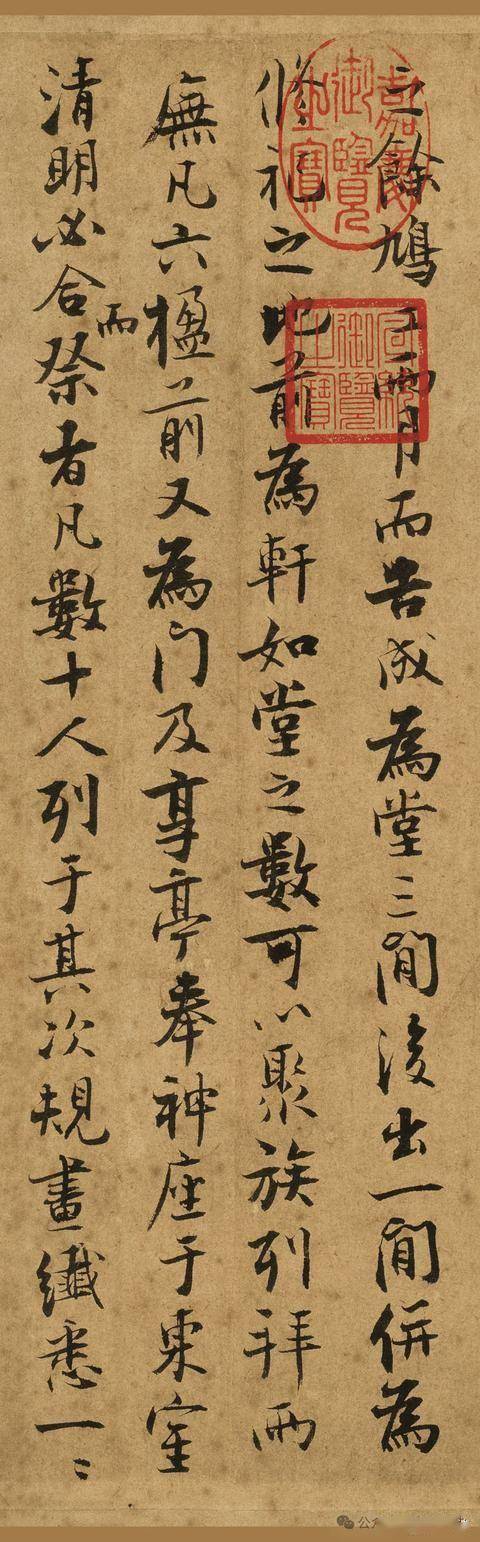 之餘鳩工兩月而告成為堂三間後出一間併為
修祀之地前為軒如堂之數可以聚族列拜兩
廡凡六楹前又為門及享亭奉神座于東室
而
清明必合祭者凡數十人列于其次規畫纖悉一〻
嘉慶御覽之寶
御覽之寶
公众